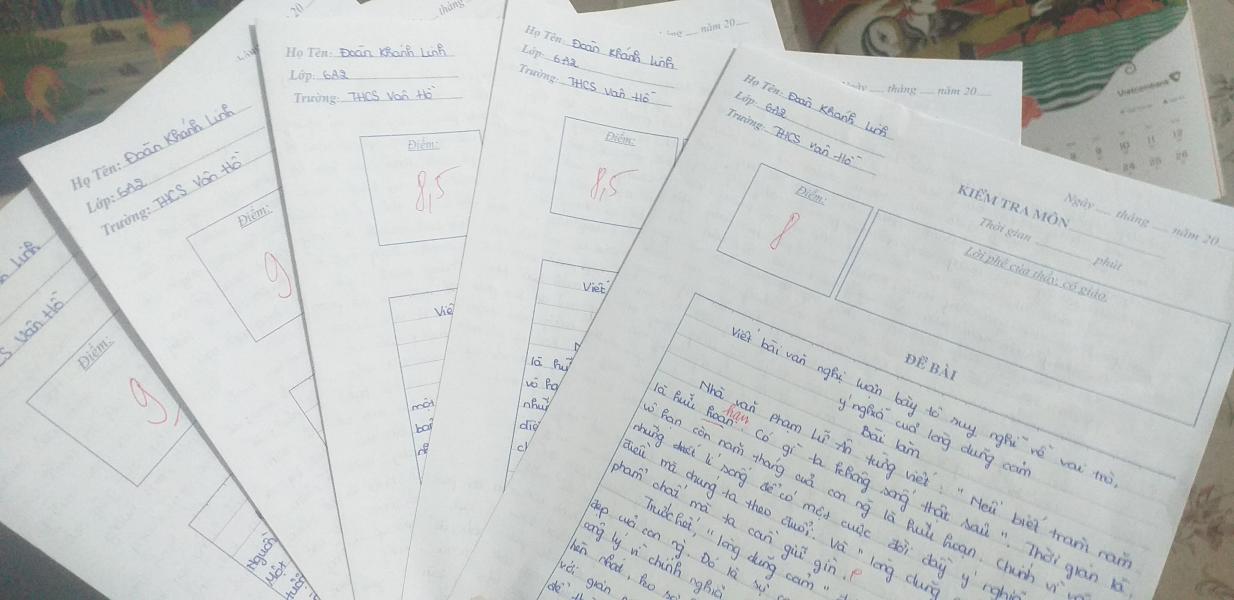 n Linh
S Vân Hồ
Điểm:
9,
Nguồn
Một
Họ Tên: Đoàn Khánh Linh
Lớp: 6A2
Trường: THCS Vân Hồ
Điểm:
9
20
tháng
Họ Tên: Đoàn Khánh Linh
Lớp: 6A2
Trường: THCS Vân Hồ
Điểm:
8,5
Viế
một
năm 20
Họ Tên: Đoàn Khánh Linh
Lớp: 6A2
Trường: THCS Vân Hồ
Điểm:
8,5
Viết
là hữu
vô hạ
nhữ
điề
tháng năm 20
Họ Tên: Đoàn Khánh Linh
Lớp: 6A2
Trường: THCS Vân Hồ
Điểm:
8
Ngày tháng năm 20
KIỂM TRA MÔN
Thời gian phút
Lời phê của thầy, cô giáo.
ĐỀ BÀI
Viết bài văn nghị luận bày tỏ suy nghĩ về vai trò,
ý nghĩa của lòng dũng cảm
Bài làm
Nhà văn Phạm Lữ Ân từng viết: "Nếu biết trăm năm
là hữu hoạn. Có gì ta không sống thật sâu". Thời gian là
hạn
vô hạn còn năm tháng của con ng là hữu hoạn. Chính vì vậy
những li sống để có một cuộc đời đầy ý nghĩa
điều mà chúng ta theo đuổi. Và "lòng dũng
phẩm chất mà ta cần giữ gìn.
Trước hết, "lòng dũng cảm"
đẹp của con ng. Đó là sự
công lý vì chính nghĩa
hèn nhát,
với gian
Vietcombank
9 10 11 12
24 25 26